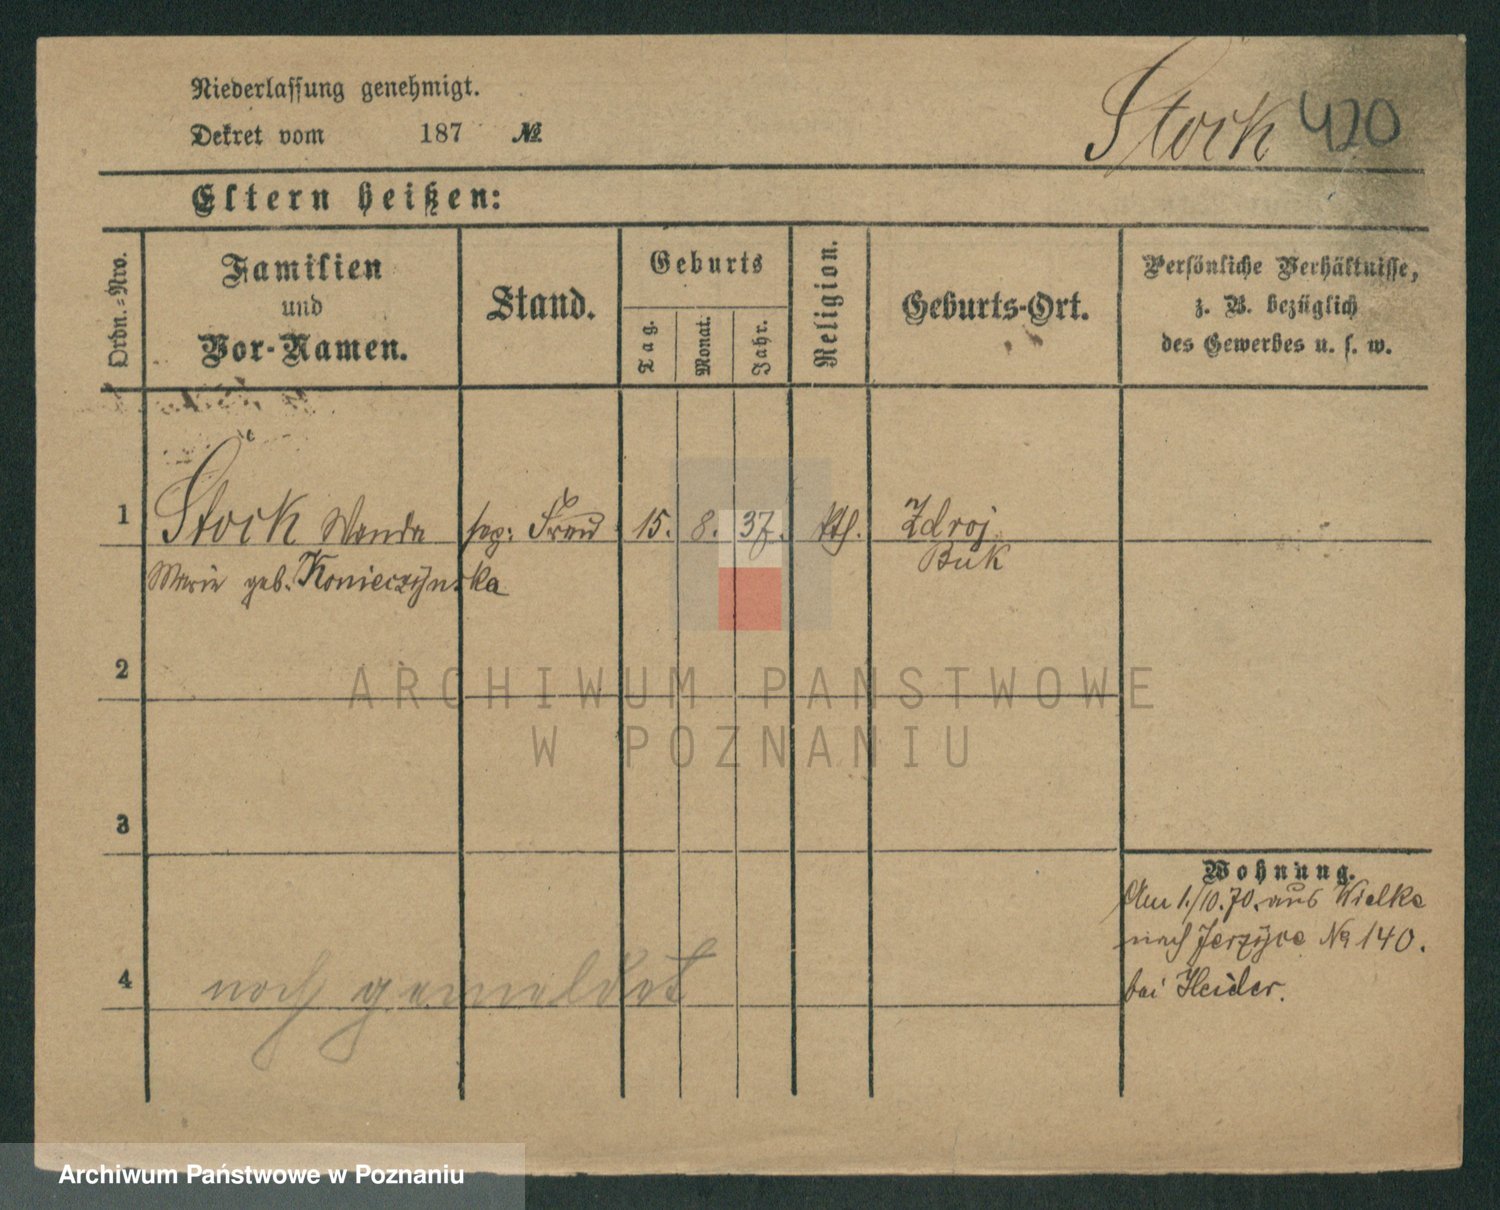 Niederlassung genehmigt.
Dekret vom 187 №
Stock 420
Eltern heißen:
Ordn.-Nro.
Familien
und
Vor-Namen.
Stand.
Geburts
Tag.
Monat.
Jahr.
Religion.
Geburts-Ort.
Persönliche Verhältnisse,
z. B. bezüglich
des Gewerbes u. s. w.
1 Stock Wanda sep: Frau 15. 8. 37. kth. Zdroj
Marie geb. Konieczynska Buk
2
3
4
Wohnung.
Am 1./10.70. aus Wielke
nach Jerzyce № 140.
bei Heider.
noch gemeldet
ARCHIWUM PAŃSTWOWE
W POZNANIU
Archiwum Państwowe w Poznaniu